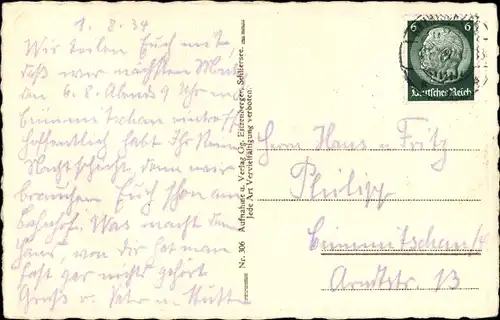 1.8.34
Wir teilen Euch mit,
daß wir nächsten Mon
den 6.8. Abends 9 Uhr in
Crimmitschau eintreff
hoffentlich habt Ihr keine
Nachtschicht, denn wir
brauchen Euch schon am
Bahnhof. Was macht denn
Hans, von dir hat man
fast gar nichts gehört
Gruß v. Vater u. Mutter
Nr. 306 Aufnahme u. Verlag Gg. Eizenberger, Schliersee.
Jede Art Vervielfältigung verboten.
6 6
Deutsches Reich
Herrn Hans u Fritz
Philipp
Crimmitschau/
Arndtstr. 13